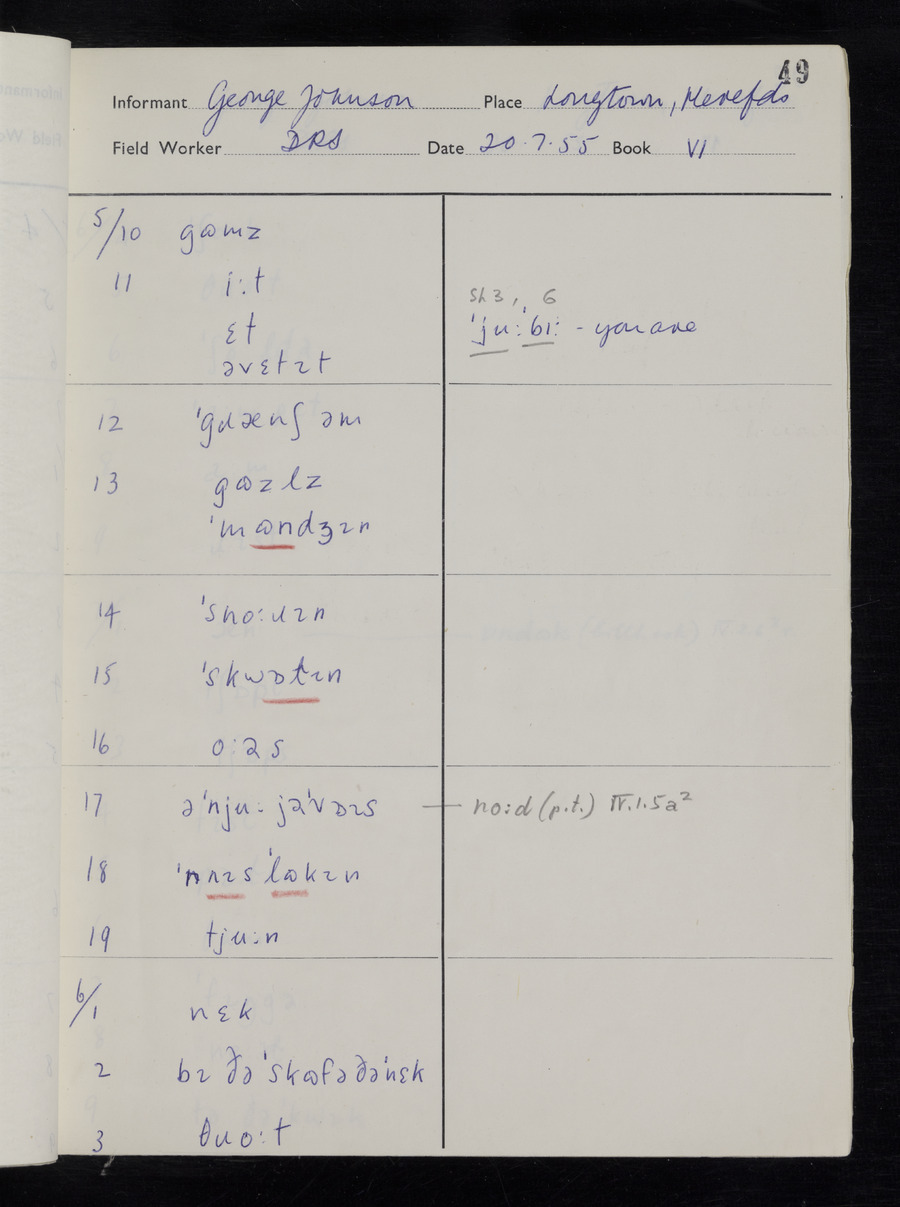 49
Informant George Johnson Place Longtown, Herefds
Field Worker DRS Date 20.7.55 Book VI
5/10 gɷmz
11 i:t
ɛt
əvɛtɪt
sh 3, 6
ˈju:ˈbi: - you are
12 ˈgɹænʃəm
13 gɷzlz
ˈmɷndʒɪn
14 ˈsno:ɹɪn
15 ˈskwɒtɪn
16 o:əs
17 əˈnju: jəˈvɒɪs — no:d (p.t.) IV.1.5a²
18 ˈnɪsˈlɷkɪn
19 tju:n
6/1 nɛk
2 bɪ ðəˈskɷfə ðəˈnɛk
3 θɹo:t